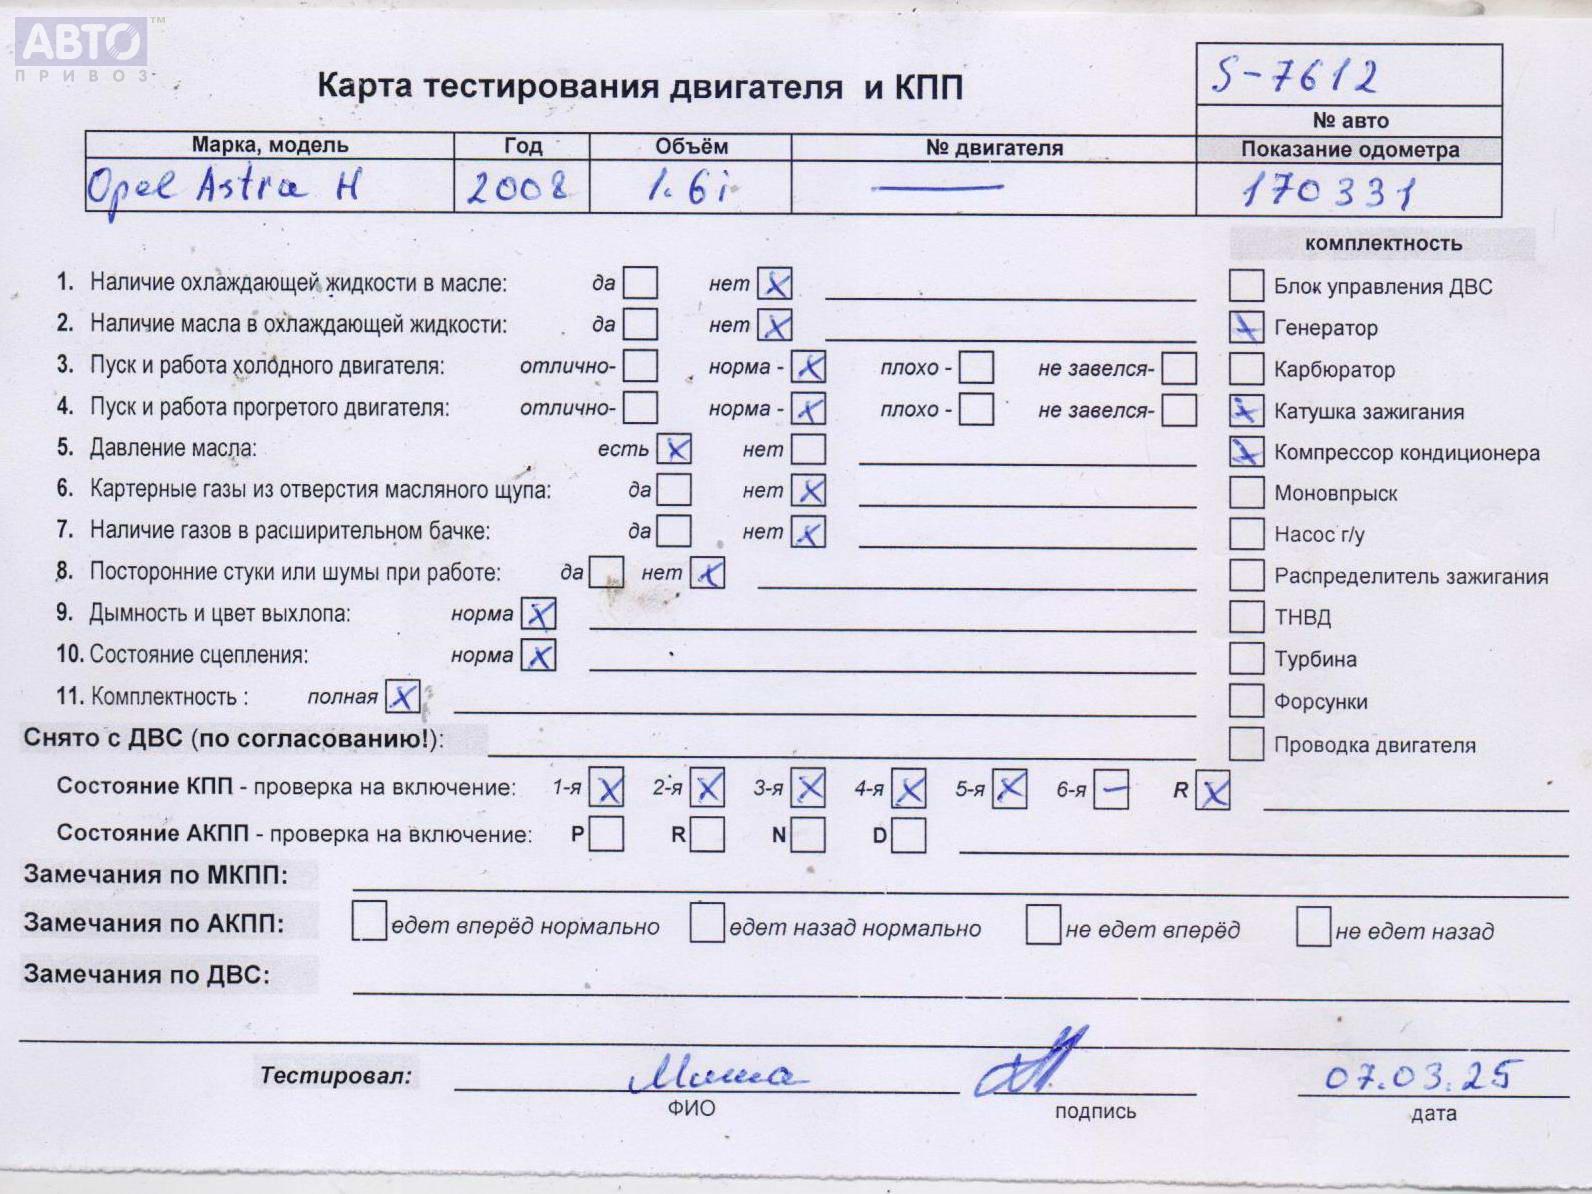 АВТО™
ПРИВОЗ
Карта тестирования двигателя и КПП
S-7612
№ авто
Марка, модель Год Объём № двигателя Показание одометра
Opel Astra H 2008 1.6i — 170331
комплектность
1. Наличие охлаждающей жидкости в масле: да нет X
Блок управления ДВС
2. Наличие масла в охлаждающей жидкости: да нет X
X Генератор
3. Пуск и работа холодного двигателя: отлично- норма - X плохо - не завелся-
Карбюратор
4. Пуск и работа прогретого двигателя: отлично- норма - X плохо - не завелся-
X Катушка зажигания
5. Давление масла: есть X нет
X Компрессор кондиционера
6. Картерные газы из отверстия масляного щупа: да нет X
Моновпрыск
7. Наличие газов в расширительном бачке: да нет X
Насос г/у
8. Посторонние стуки или шумы при работе: да нет X
Распределитель зажигания
9. Дымность и цвет выхлопа: норма X
ТНВД
10. Состояние сцепления: норма X
Турбина
11. Комплектность : полная X
Форсунки
Снято с ДВС (по согласованию!):
Проводка двигателя
Состояние КПП - проверка на включение: 1-я X 2-я X 3-я X 4-я X 5-я X 6-я – R X
Состояние АКПП - проверка на включение: P R N D
Замечания по МКПП:
Замечания по АКПП: едет вперёд нормально едет назад нормально не едет вперёд не едет назад
Замечания по ДВС:
Тестировал: Миша 07.03.25
ФИО подпись дата